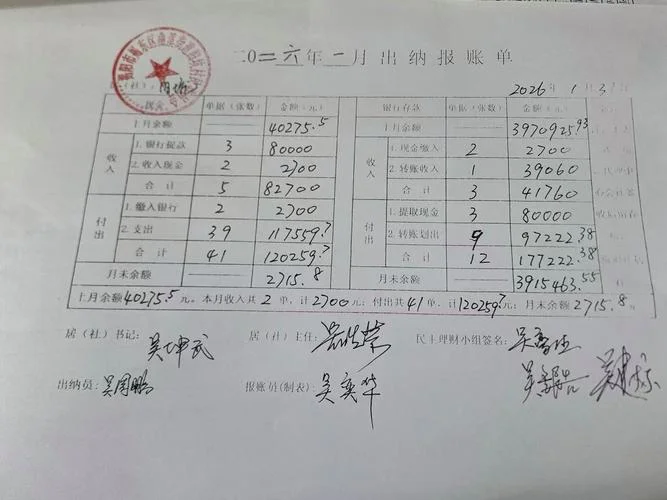 二〇二六年一月出纳报账单
2026年1月31日
现金 单据(张数) 金额(元) 银行存款 单据(张数) 金额(元)
上月余额 40275.5 上月余额 3970925.93
收入 1.银行提款 3 80000 收入 1.现金缴入 2 2700
2.收入现金 2 2700 2.转账收入 1 39060
合计 5 82700 合计 3 41760
付出 1.缴入银行 2 2700 付出 1.提取现金 3 80000
2.支出 39 117559.7 2.转账划出 9 97222.38
合计 41 120259.7 合计 12 177222.38
月末余额 2715.8 月末余额 3915463.55
上月余额40275.5元。本月收入共2单,计2700元;付出共41单,计120259.7元;月末余额2715.8元
居(社)书记: 吴坤武 居(社)主任: 民主理财小组签名:
出纳员: 吴周鹏 报账员(制表): 吴奕华